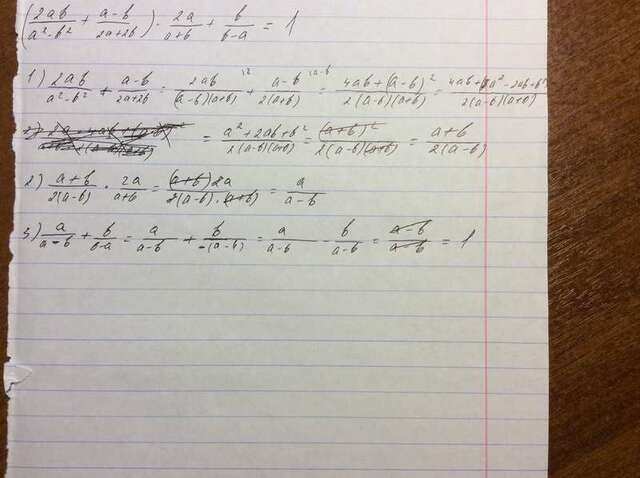 (2ab/(a²-b²) + (a-b)/(2a+2b)) · 2a/(a+b) + b/(b-a) = 1
1) 2ab/(a²-b²) + (a-b)/(2a+2b) = 2ab/((a-b)(a+b)) + (a-b)/(2(a+b)) = (4ab+(a-b)²)/(2(a-b)(a+b)) = (4ab+a²-2ab+b²)/(2(a-b)(a+b))
= (a²+2ab+b²)/(2(a-b)(a+b)) = (a+b)²/(2(a-b)(a+b)) = (a+b)/(2(a-b))
2) (a+b)/(2(a-b)) · 2a/(a+b) = ((a+b)2a)/(2(a-b)·(a+b)) = a/(a-b)
3) a/(a-b) + b/(b-a) = a/(a-b) + b/(-(a-b)) = a/(a-b) - b/(a-b) = (a-b)/(a-b) = 1